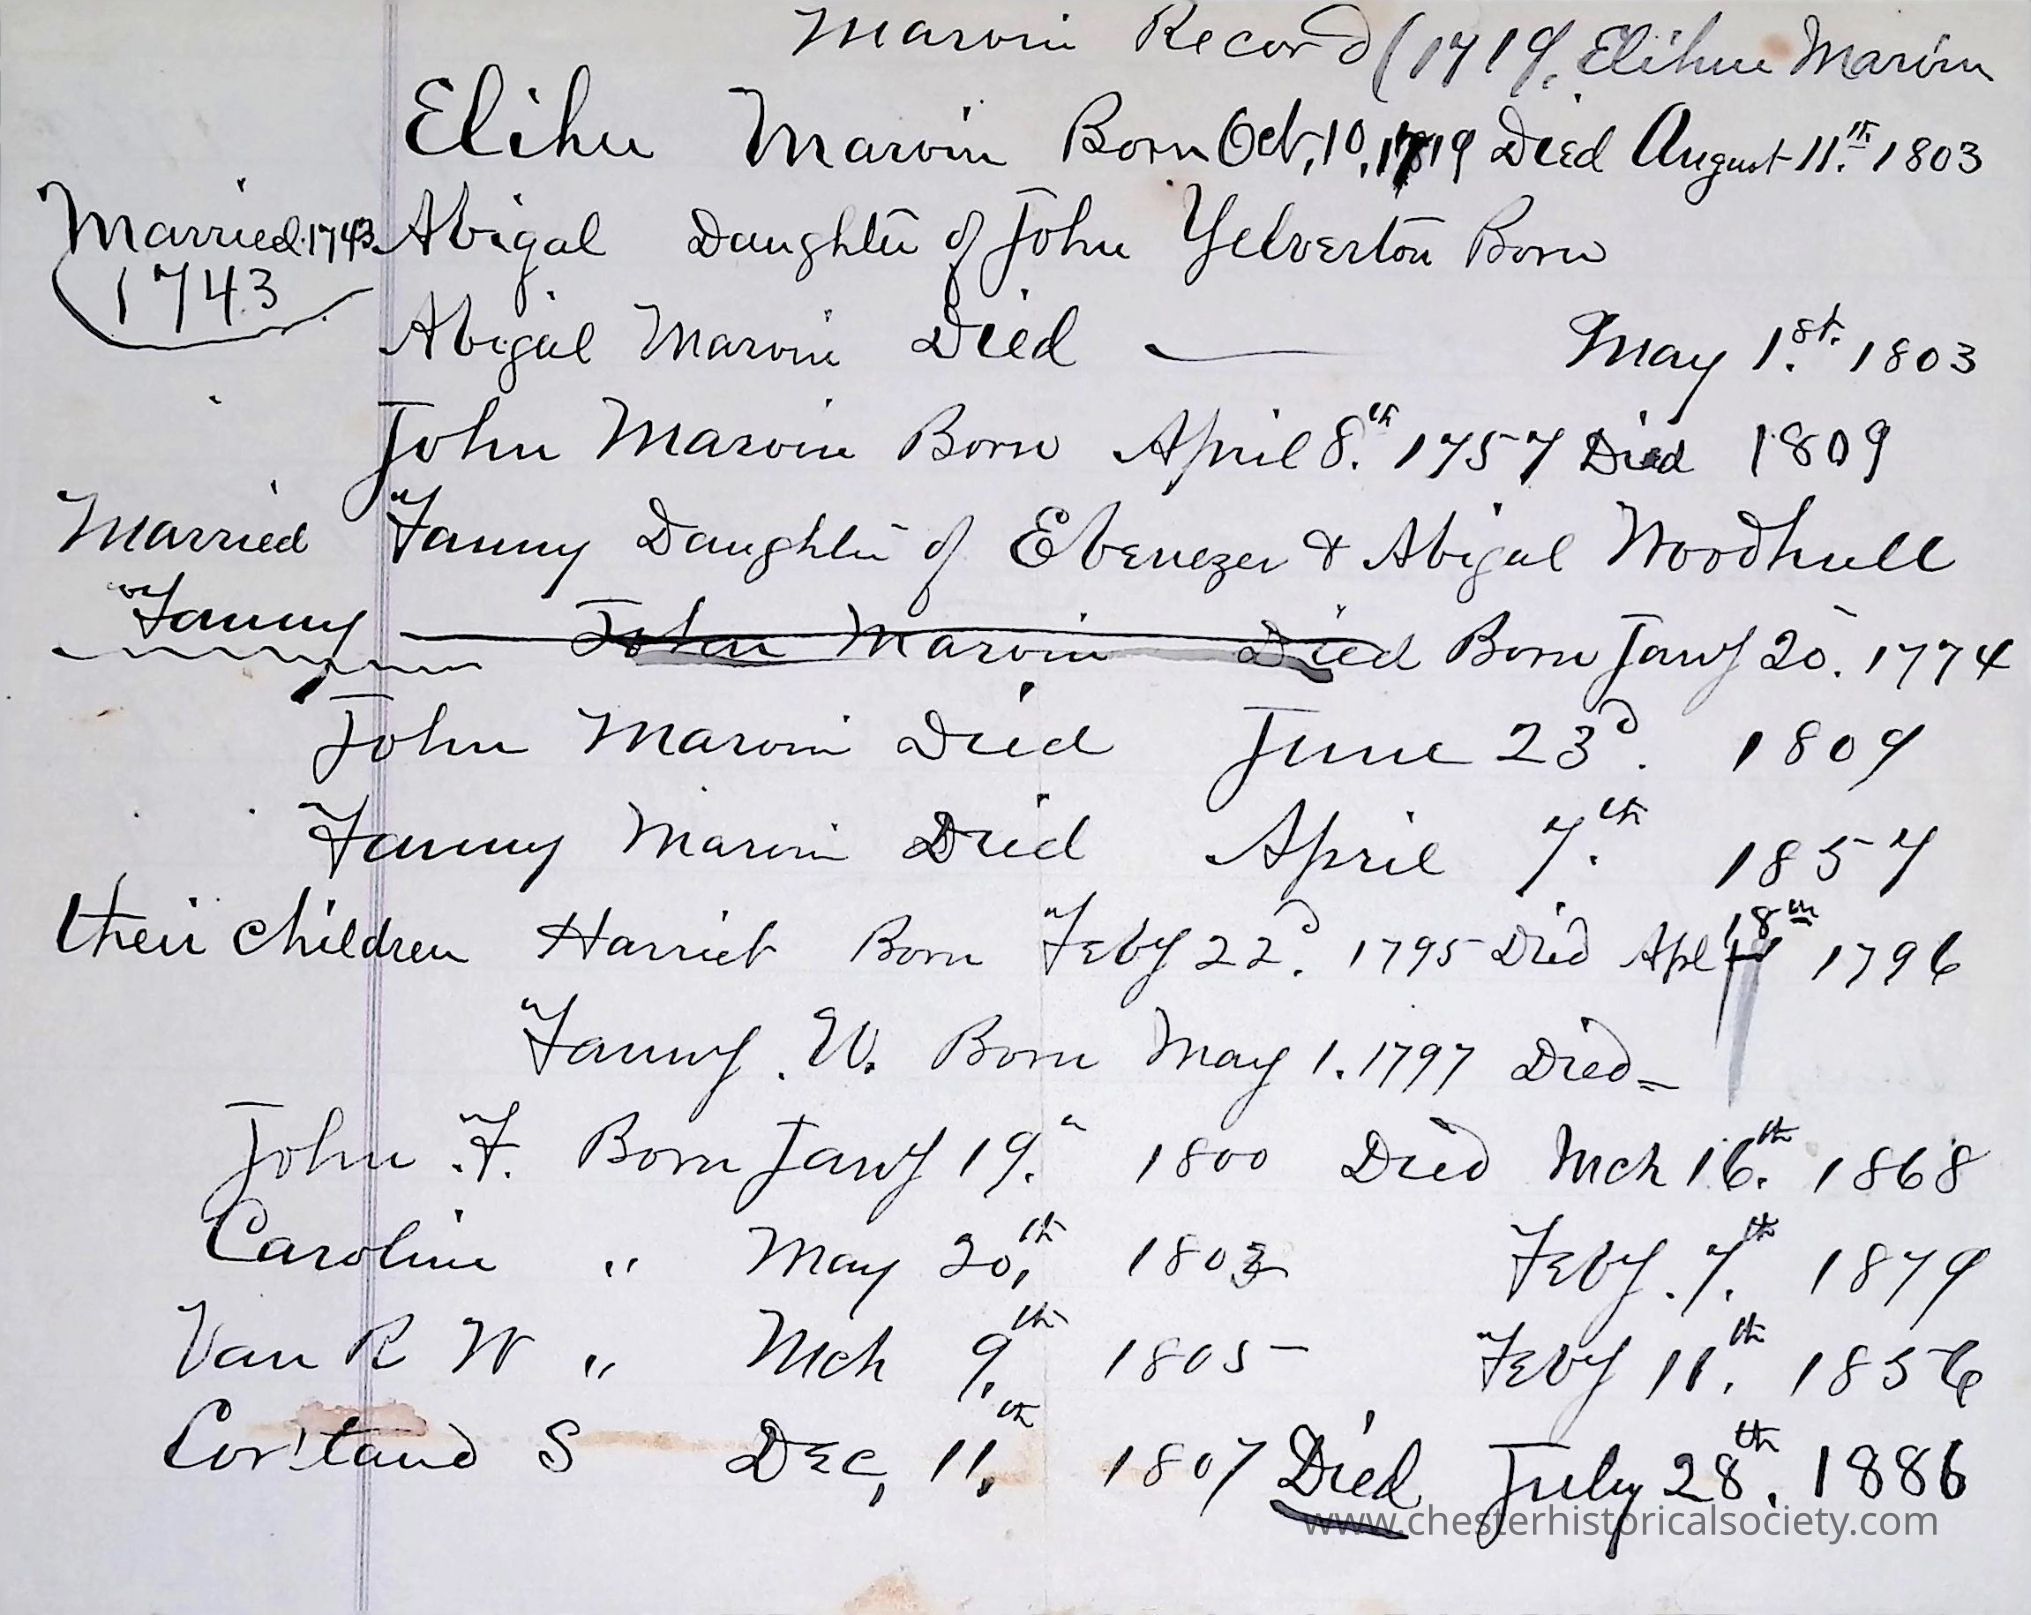 Marvin Record (1719. Elihu Marvin
Elihu Marvin Born Oct, 10, 1719 Died August 11.th 1803
Married 1743 Abigal Daughter of John Yelverton Born
1743
Abigal Marvin Died — May 1.st. 1803
John Marvin Born April 8.th 1757 Died 1809
Married Fanny Daughter of Ebenezer & Abigal Woodhull
Fanny — John Marvin Died Born Jany 20. 1774
John Marvin Died June 23d. 1809
Fanny Marvin Died April 7.th 1857
their children Harriet Born Feby 22d. 1795 Died Apl 18th 1796
Fanny. W. Born May 1. 1797 Died=
John .F. Born Jany 19." 1800 Died Mch 16.th 1868
Caroline " May 20,th 1803 Feby. 7.th 1879
Van R W " Mch 9.th 1805 Feby 11.th 1856
Cor'tand S Dec, 11.th 1807 Died July 28th. 1886
www.chesterhistoricalsociety.com